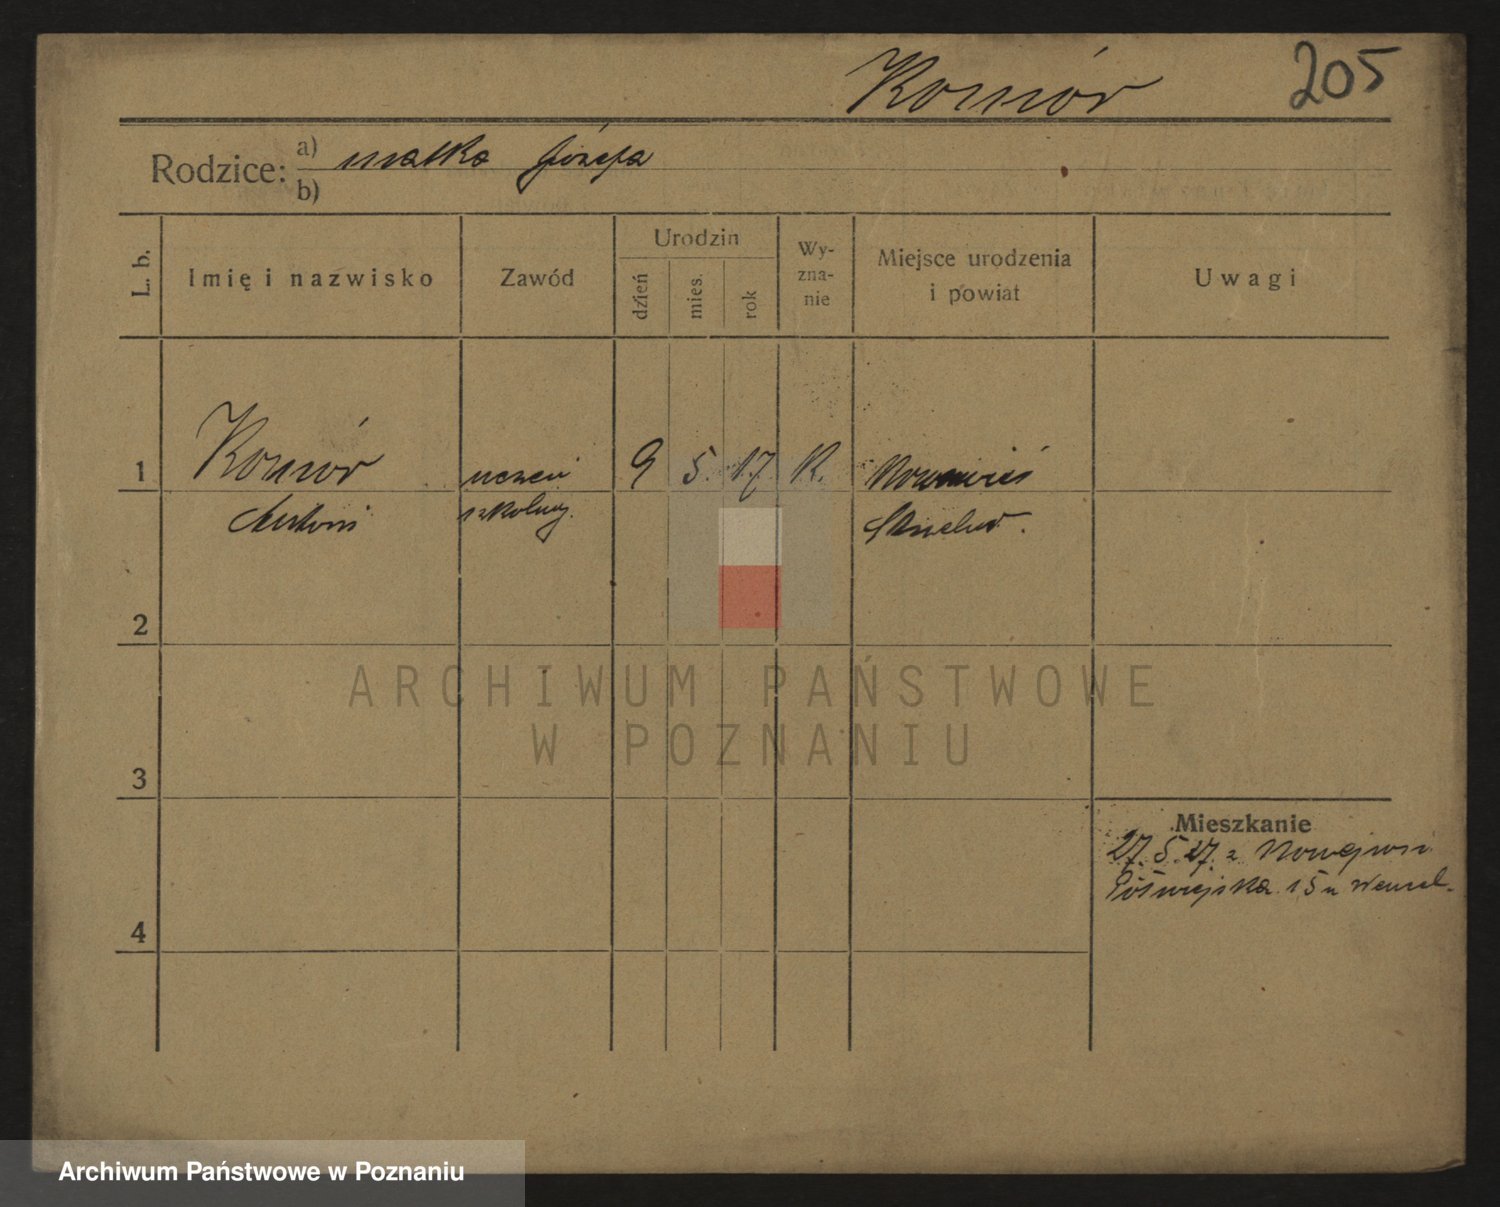 Komór 205
Rodzice: a) matka Józefa
b)
L. b. Imię i nazwisko Zawód Urodzin dzień mies. rok Wy-zna-nie Miejsce urodzenia i powiat Uwagi
1 Komór uczeń 9 5. 17 R. Nowawieś
Antoni szkolny.
2
ARCHIWUM PAŃSTWOWE
W POZNANIU
3
Mieszkanie
27. 5. 27. z Nowejwsi
15 u
4
Archiwum Państwowe w Poznaniu